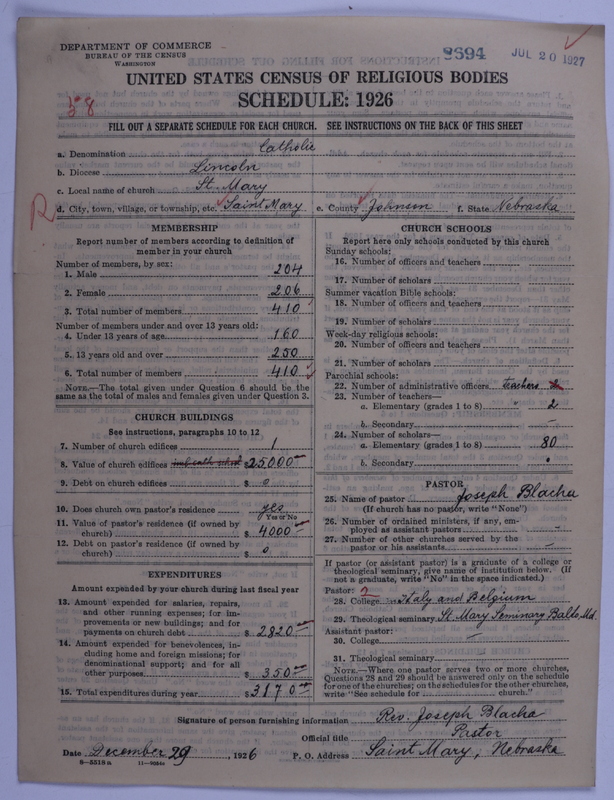 DEPARTMENT OF COMMERCE
BUREAU OF THE CENSUS
WASHINGTON
8694
JUL 20 1927
UNITED STATES CENSUS OF RELIGIOUS BODIES
SCHEDULE: 1926
58
FILL OUT A SEPARATE SCHEDULE FOR EACH CHURCH. SEE INSTRUCTIONS ON THE BACK OF THIS SHEET
a. Denomination Catholic
b. Diocese Lincoln
c. Local name of church St. Mary
R
d. City, town, village, or township, etc. Saint Mary e. County Johnson f. State Nebraska
MEMBERSHIP
Report number of members according to definition of
member in your church
Number of members, by sex:
1. Male 204
2. Female 206
3. Total number of members 410
Number of members under and over 13 years old:
4. Under 13 years of age 160
5. 13 years old and over 250
6. Total number of members 410
NOTE.—The total given under Question 6 should be the
same as the total of males and females given under Question 3.
CHURCH BUILDINGS
See instructions, paragraphs 10 to 12
7. Number of church edifices 1
8. Value of church edifices $ 25,000
9. Debt on church edifices $ 0
10. Does church own pastor's residence? yes
Yes or No
11. Value of pastor's residence (if owned by
church) $ 4000
12. Debt on pastor's residence (if owned by
church) $ 0
EXPENDITURES
Amount expended by your church during last fiscal year
13. Amount expended for salaries, repairs,
and other running expenses; for im-
provements or new buildings; and for
payments on church debt $ 2820
14. Amount expended for benevolences, in-
cluding home and foreign missions; for
denominational support; and for all
other purposes $ 350
15. Total expenditures during year $ 3170
CHURCH SCHOOLS
Report here only schools conducted by this church
Sunday schools:
16. Number of officers and teachers
17. Number of scholars
Summer vacation Bible schools:
18. Number of officers and teachers
19. Number of scholars
Week-day religious schools:
20. Number of officers and teachers
21. Number of scholars
Parochial schools:
22. Number of administrative officers teachers 2
23. Number of teachers—
a. Elementary (grades 1 to 8) " 2
b. Secondary –
24. Number of scholars—
a. Elementary (grades 1 to 8) 80
b. Secondary
PASTOR
25. Name of pastor Joseph Blacha
(If church has no pastor, write "None")
26. Number of ordained ministers, if any, em-
ployed as assistant pastors –
27. Number of other churches served by the
pastor or his assistants –
If pastor (or assistant pastor) is a graduate of a college or
theological seminary, give name of institution below. (If
not a graduate, write "No" in the space indicated.)
Pastor: 2
28. College in Italy and Belgium
29. Theological seminary St. Mary Seminary Balto. Md.
Assistant pastor:
30. College –
31. Theological seminary
NOTE.—Where one pastor serves two or more churches,
Questions 28 and 29 should be answered only on the schedule
for one of the churches; on the schedules for the other churches,
write "See schedule for church."
Signature of person furnishing information Rev. Joseph Blacha
Official title Pastor
Date December 29, 1926 P. O. Address Saint Mary, Nebraska